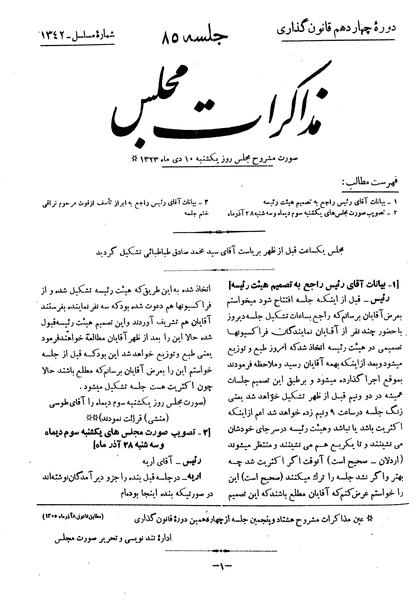 دورهٔ چهاردهم قانون‌گذاری
جلسه ۸۵
شمارهٔ مسلسل ـ ۱۳۴۲
مذاکرات مجلس
صورت مشروح مجلس روز یکشنبه ۱۰ دی ماه ۱۳۲۳ *
فهرست مطالب:
۱ ـ بیانات آقای رئیس راجع به تصمیم هیئت رئیسه
۲ ـ تصویب صورت مجلس‌های یکشنبه سوم دیماه و سه شنبه ۲۸ آذرماه
۳ ـ بیانات آقای رئیس راجع به ابراز تأسف از فوت مرحوم نراقی
ختم جلسه
مجلس یکساعت قبل از ظهر بریاست آقای سید محمد صادق طباطبائی تشکیل گردید
[۱ـ بیانات آقای رئیس راجع به تصمیم هیئت رئیسه]
رئیس ـ قبل از اینکه جلسه افتتاح شود میخواستم
بعرض آقایان برسانم که راجع بساعات تشکیل جلسه دیروز
با حضور چند نفر از آقایان نمایندگان فراکسیونها
تصمیمی در هیئت رئیسه اتخاذ شد که امروز طبع و توزیع
میشود و بعد از اینکه بهمه آقایان رسید و ملاحظه فرمودند
بموقع اجرا گذارده میشود و برطبق این تصمیم جلسات
همیشه در دو نیم قبل از ظهر تشکیل خواهد شد یعنی
زنگ جلسه در ساعت ۹ ونیم زده خواهد شد اعم از اینکه
اکثریت باشد یا نباشد وهیئت رئیسه درسرجای خودشان
می نشینند و تا یکربع هم می نشینند و منتظر میشوند
(اردلان ـ صحیح است) آنوقت اگر اکثریت شد چه
بهتر واگر نشد جلسه را ترك میکنند (صحیح است) این
را خواستم عرض کنم که آقایان مطلع باشند که این تصمیم
اتخاذ شده به این طریق که هیئت رئیسه تشکیل شده و از
فراکسیونها هم دعوت شده بود که سه نفر نماینده بفرستند
آقایان هم تشریف آوردند واین تصمیم هیئت رئیسه قبول
شده حالا این را بعد از ظهر آقایان مطالعه خواهند فرمود
یعنی طبع و توزیع خواهد شد این بود که قبل از جلسه
خواستم این را بعرض آقایان برسانم که مطلع باشند حالا
چون اکثریت هست جلسه تشکیل میشود.
(صورت مجلس روز یکشنبه سوم دیماه را آقای طوسی
(منشی) قرائت نمودند) **
[۲ـ تصویب صورت مجلس های یکشنبه سوم دیماه
و سه شنبه ۲۸ آذر ماه]
رئیس ـ آقای اریه
اریه ـ درجلسه قبل بنده را جزو دیر آمدگان نوشته‌اند
در صورتیکه بنده اینجا بوده‌ام
* عین مذاکرات مشروح هشتاد و پنجمین جلسه از چهاردهمین دورهٔ قانون گذاری
(مطابق قانون ۸ آذر ماه ۱۳۰۵)
ادارهٔ تند نویسی و تحریر صورت مجلس
ـ۱ـ